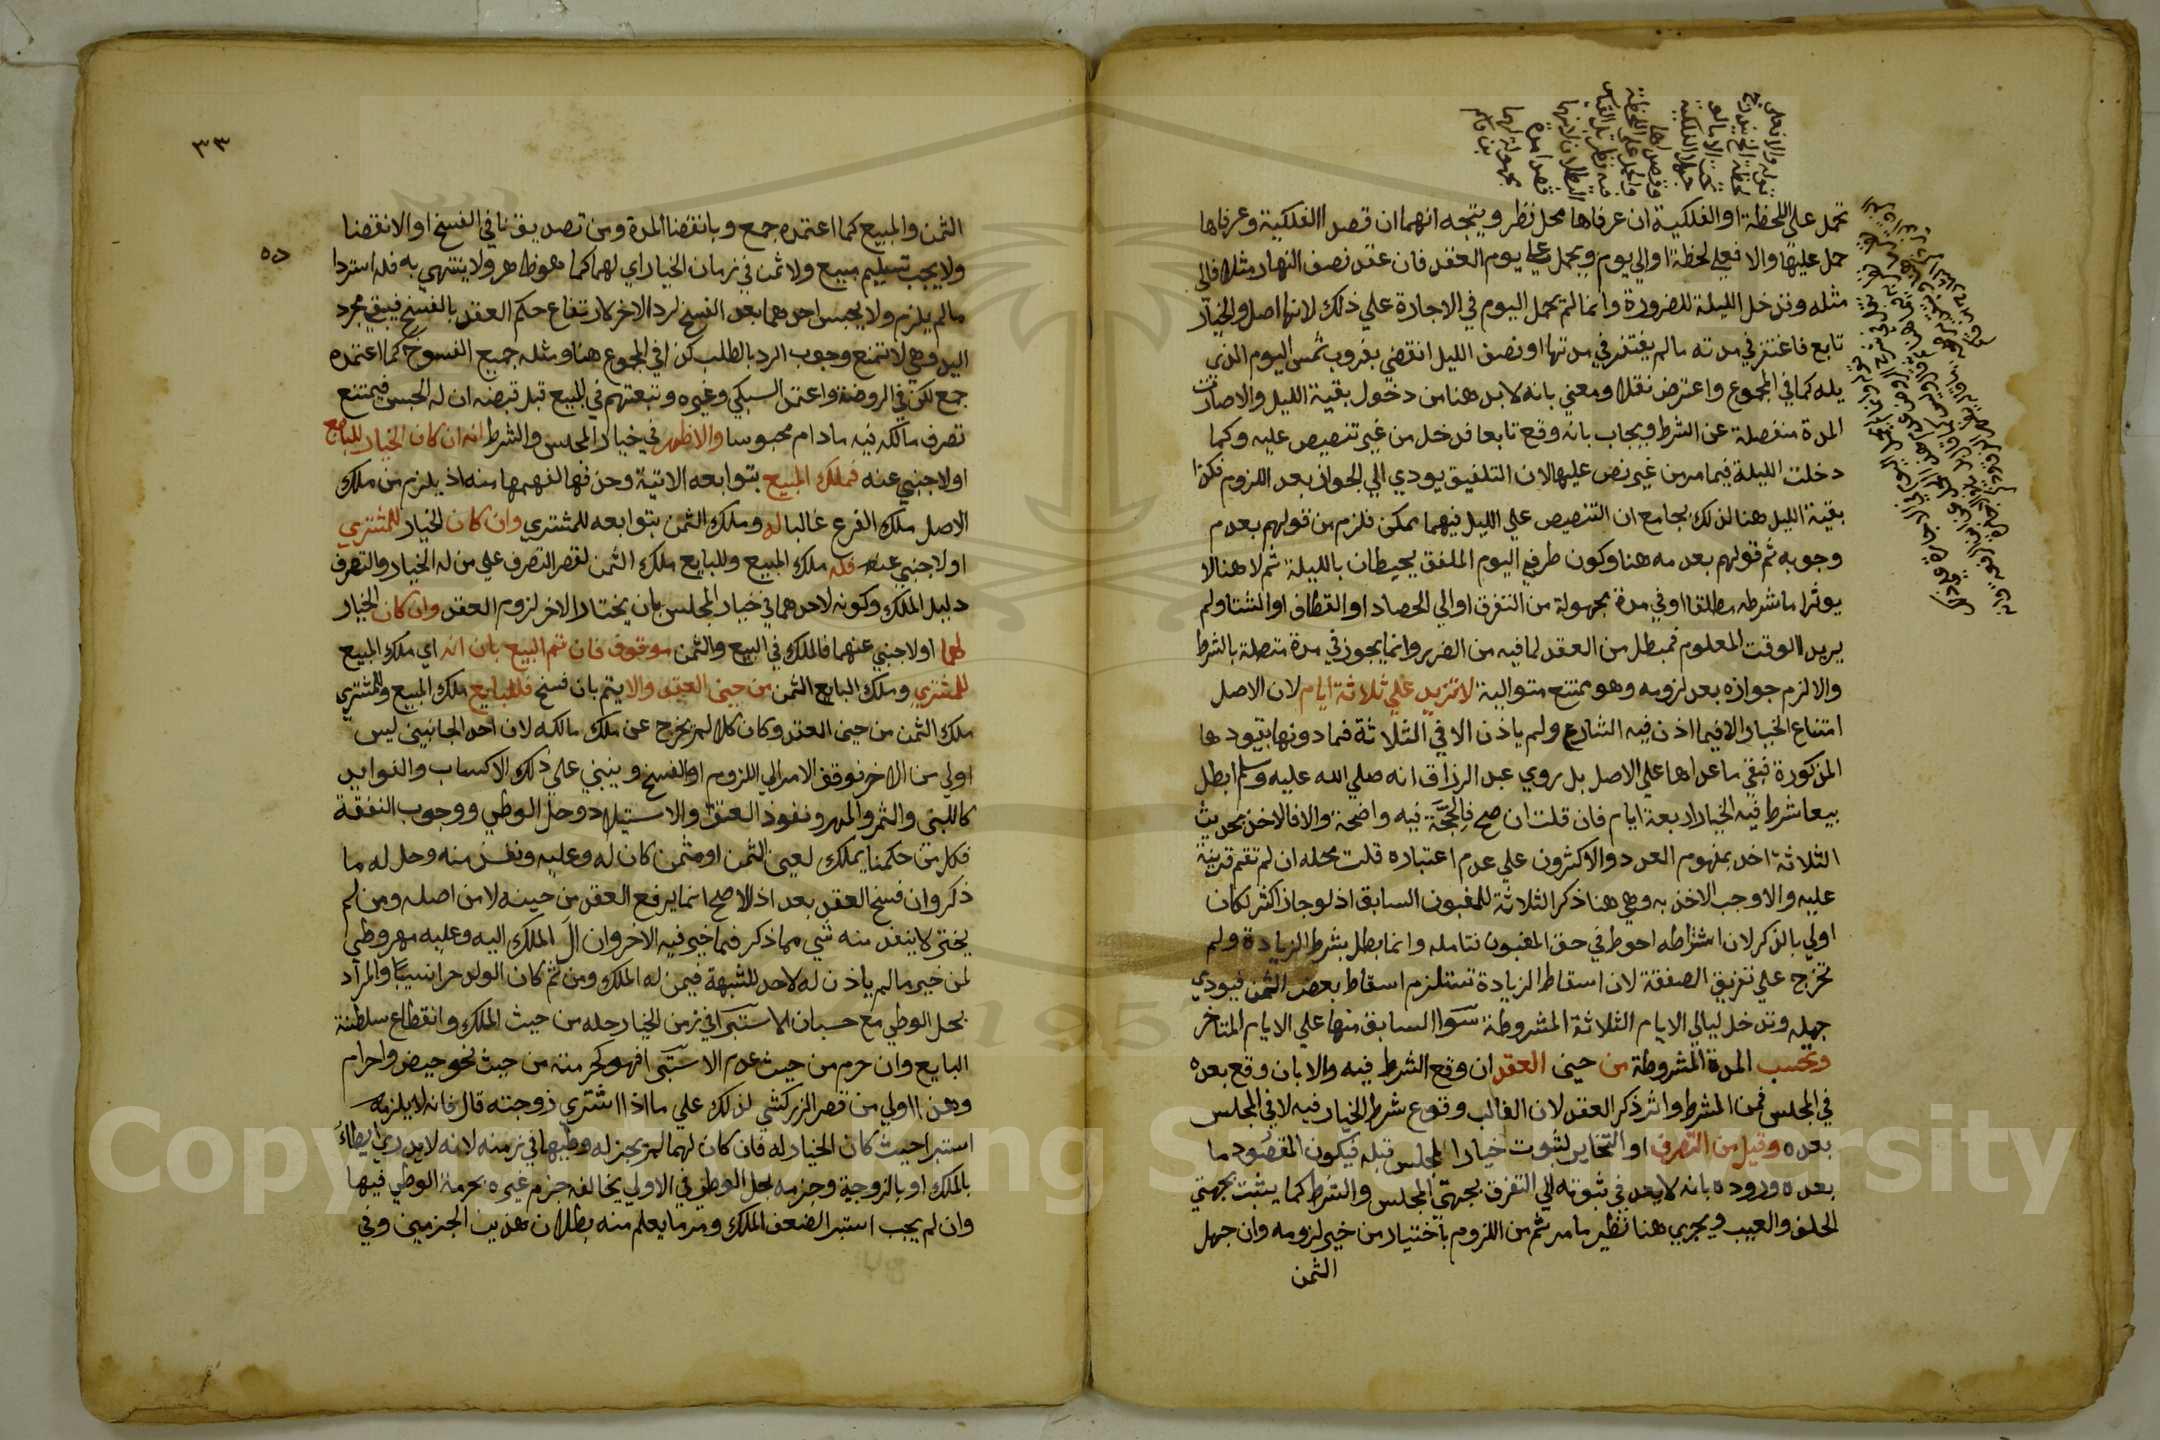 تحمل على اللحظة او الفلكية ان عرفاها محل نظر ويتجه انهما ان قصدا الفلكية وعرفاها
حمل عليها والا فعلى لحظة او الى يوم ويحمل على يوم العقد فان عقد نصف النهار مثلا فالى
مثله وتدخل الليلة للضرورة وانما لم يحمل اليوم في الاجارة على ذلك لانها اصل والخيار
تابع فاغتفر في مدته ما لم يغتفر في مدتها او نصف الليل انقضى بغروب شمس اليوم الذي
يليه كما في المجموع واعترض نقلا ومعنى بانه لابد هنا من دخول بقية الليل والا صارت
المدة منفصلة عن الشرط ويجاب بانه وقع تابعا فدخل من غير تنصيص عليه وكما
دخلت الليلة فيما مر من غير نص عليها لان التلفيق يودي الى الجواز بعد اللزوم فكذا
بقية الليل هنا لذلك بجامع ان التنصيص على الليل فيهما ممكن فلزم من قولهم بعدم
وجوبه ثم قولهم بعدمه هنا وكون طرفي اليوم الملفق يحيطان بالليلة ثم لا هنا لا
يوثر اما شرطه مطلقا او في مدة مجهولة من التفرق او الى الحصاد او القطاف او الشتا ولم
يريدا الوقت المعلوم فمبطل من العقد لما فيه من الغرر وانما يجوز في مدة متصلة بالشرط
والا لزم جوازه بعد لزومه وهو ممتنع متوالية لا تزيد على ثلاثة ايام لان الاصل
امتناع الخيار الا فيما اذن فيه الشارع ولم ياذن الا في الثلاثة فما دونها بقيودها
المذكورة فبقي ما عداها على الاصل بل روى عبد الرزاق انه صلى الله عليه وسلم ابطل
بيعا شرط فيه الخيار اربعة ايام فان قلت ان صح فالحجة فيه واضحة والا فالاخذ بحديث
الثلاثة اخذ بمفهوم العدد والاكثرون على عدم اعتباره قلت محله ان لم تقم قرينة
عليه والا وجب الاخذ به وهي هنا ذكر الثلاثة للمغبون السابق اذ لو جاز اكثر لكان
اولى بالذكر لان اشتراطه احوط في حق المغبون فتامله وانما بطل بشرط الزيادة ولم
تخرج على تفريق الصفقة لان اسقاط الزيادة تستلزم اسقاط بعض الثمن فيودي
جهله وتدخل ليالي الايام الثلاثة المشروطة سوا السابق منها على الايام المتاخر
وتحسب المدة المشروطة من حين العقد ان وقع الشرط فيه والا بان وقع بعده
في المجلس فمن الشرط واثر ذكر العقد لان الغالب وقوع شرط الخيار فيه لا في المجلس
بعده وقيل من التفرق او التخاير لثبوت خيار المجلس قبله فيكون المقصود ما
بعده ورد وه بانه لا يعد في ثبوته الى التفرق بجهتي المجلس والشرط كما يثبت بجهتي
الخلف والعيب ويجري هنا نظير ما مر ثم من اللزوم باختيار من خير لزومه وان جهل
الثمن
٣٣
الثمن والمبيع كما اعتمده جمع وبانقضا المدة ومن تصديق نافي الفسخ او الانقضا
ولا يجب تسليم مبيع ولا ثمن في زمان الخيار اي لهما كما هو ظاهر ولا ينتهي به فله استردا
ده
ما لم يلزم ولا يحبس احدهما بعد الفسخ لرد الاخر لارتفاع حكم العقد بالفسخ فيبقى مجرد
اليد وهي لا تمنع وجوب الرد بالطلب كذا في المجموع هنا ومثله جميع الفسوخ كما اعتمده
جمع لكن في الروضة واعتمد السبكي وغيره وتبعتهم في المبيع قبل قبضه ان له الحبس فيمتنع
تصرف مالكه فيه ما دام محبوسا والاظهر في خيار المجلس والشرط انه ان كان الخيار للبايع
او لاجنبي عنه فملك المبيع بتوابعه الاتية وحذفها لفهمها منه اذ يلزم من ملك
الاصل ملك الفرع غالبا له وملك الثمن بتوابعه للمشتري وان كان الخيار للمشتري
او لاجنبي عنه فله ملك المبيع وللبايع ملك الثمن لقصر التصرف على من له الخيار والتصرف
دليل الملك وكونه لاحدهما في خيار المجلس بان يختار الاخر لزوم العقد وان كان الخيار
لهما او لاجنبي عنهما فالملك في المبيع والثمن موقوف فان تم البيع بان انه اي ملك المبيع
للمشتري وملك البايع الثمن من حين العقد والا يتم بان فسخ فللبايع ملك المبيع وللمشتري
ملك الثمن من حين العقد وكان كلا لم يخرج عن ملك مالكه لان احد الجانبين ليس
اولى من الاخر فوقف الامر الى اللزوم او الفسخ وينبني على ذلك الاكساب والفوايد
كاللبن والثمر والمهر ونفوذ العتق والاستيلاد وحل الوطي ووجوب النفقة
فكل من حكمنا بملك لعين الثمن او مثمن كان له وعليه ونفذ منه وحل له ما
ذكر وان فسخ العقد بعد اذ الاصح انما يرفع العقد من حينه لا من اصله ومن لم
يخير لا ينفذ منه شي مما ذكر فيما خير فيه الاخر وان ال الملك اليه وعليه مهر وطي
لمن خير ما لم ياذن له لا حد للشبهة فيمن له الملك ومن ثم كان الولد حرا نسيبا والمراد
بحل الوطي مع حسبان الاستبرا في زمن الخيار حله من حيث الملك وانقطاع سلطنة
البايع وان حرم من حيث عدم الاستبرا فهو كحرمته من حيث نحو حيض واحرام
وهذا اولى من قصر الزركشي لذلك على ما اذا اشترى زوجته قال فانه لا يلزمه
استبرا حيث كان الخيار له فان كان لهما لم يجز له وطيها في زمنه لانه لا يدري ايطا
بالملك او بالزوجية وجزمه بحل الوطي في الاولى يخالفه جزم غيره بحرمة الوطي فيها
وان لم يجب استبرا لضعف الملك ومر ما يعلم منه بطلان هذين الجزمين وفي
Copyright © King Saud University
1957